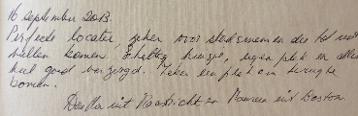 16 september 2013.
Perfecte locatie, zeker voor stadsmensen die tot rust
willen komen. Schattig huisje, eigen plek en alles
heel goed verzorgd. Zeker een plek om terug te
komen.
Desirée uit Maastricht en Maureen uit Boston.